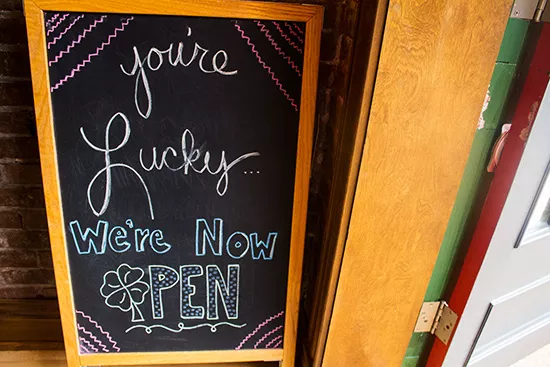 you're
Lucky...
We're Now
OPEN